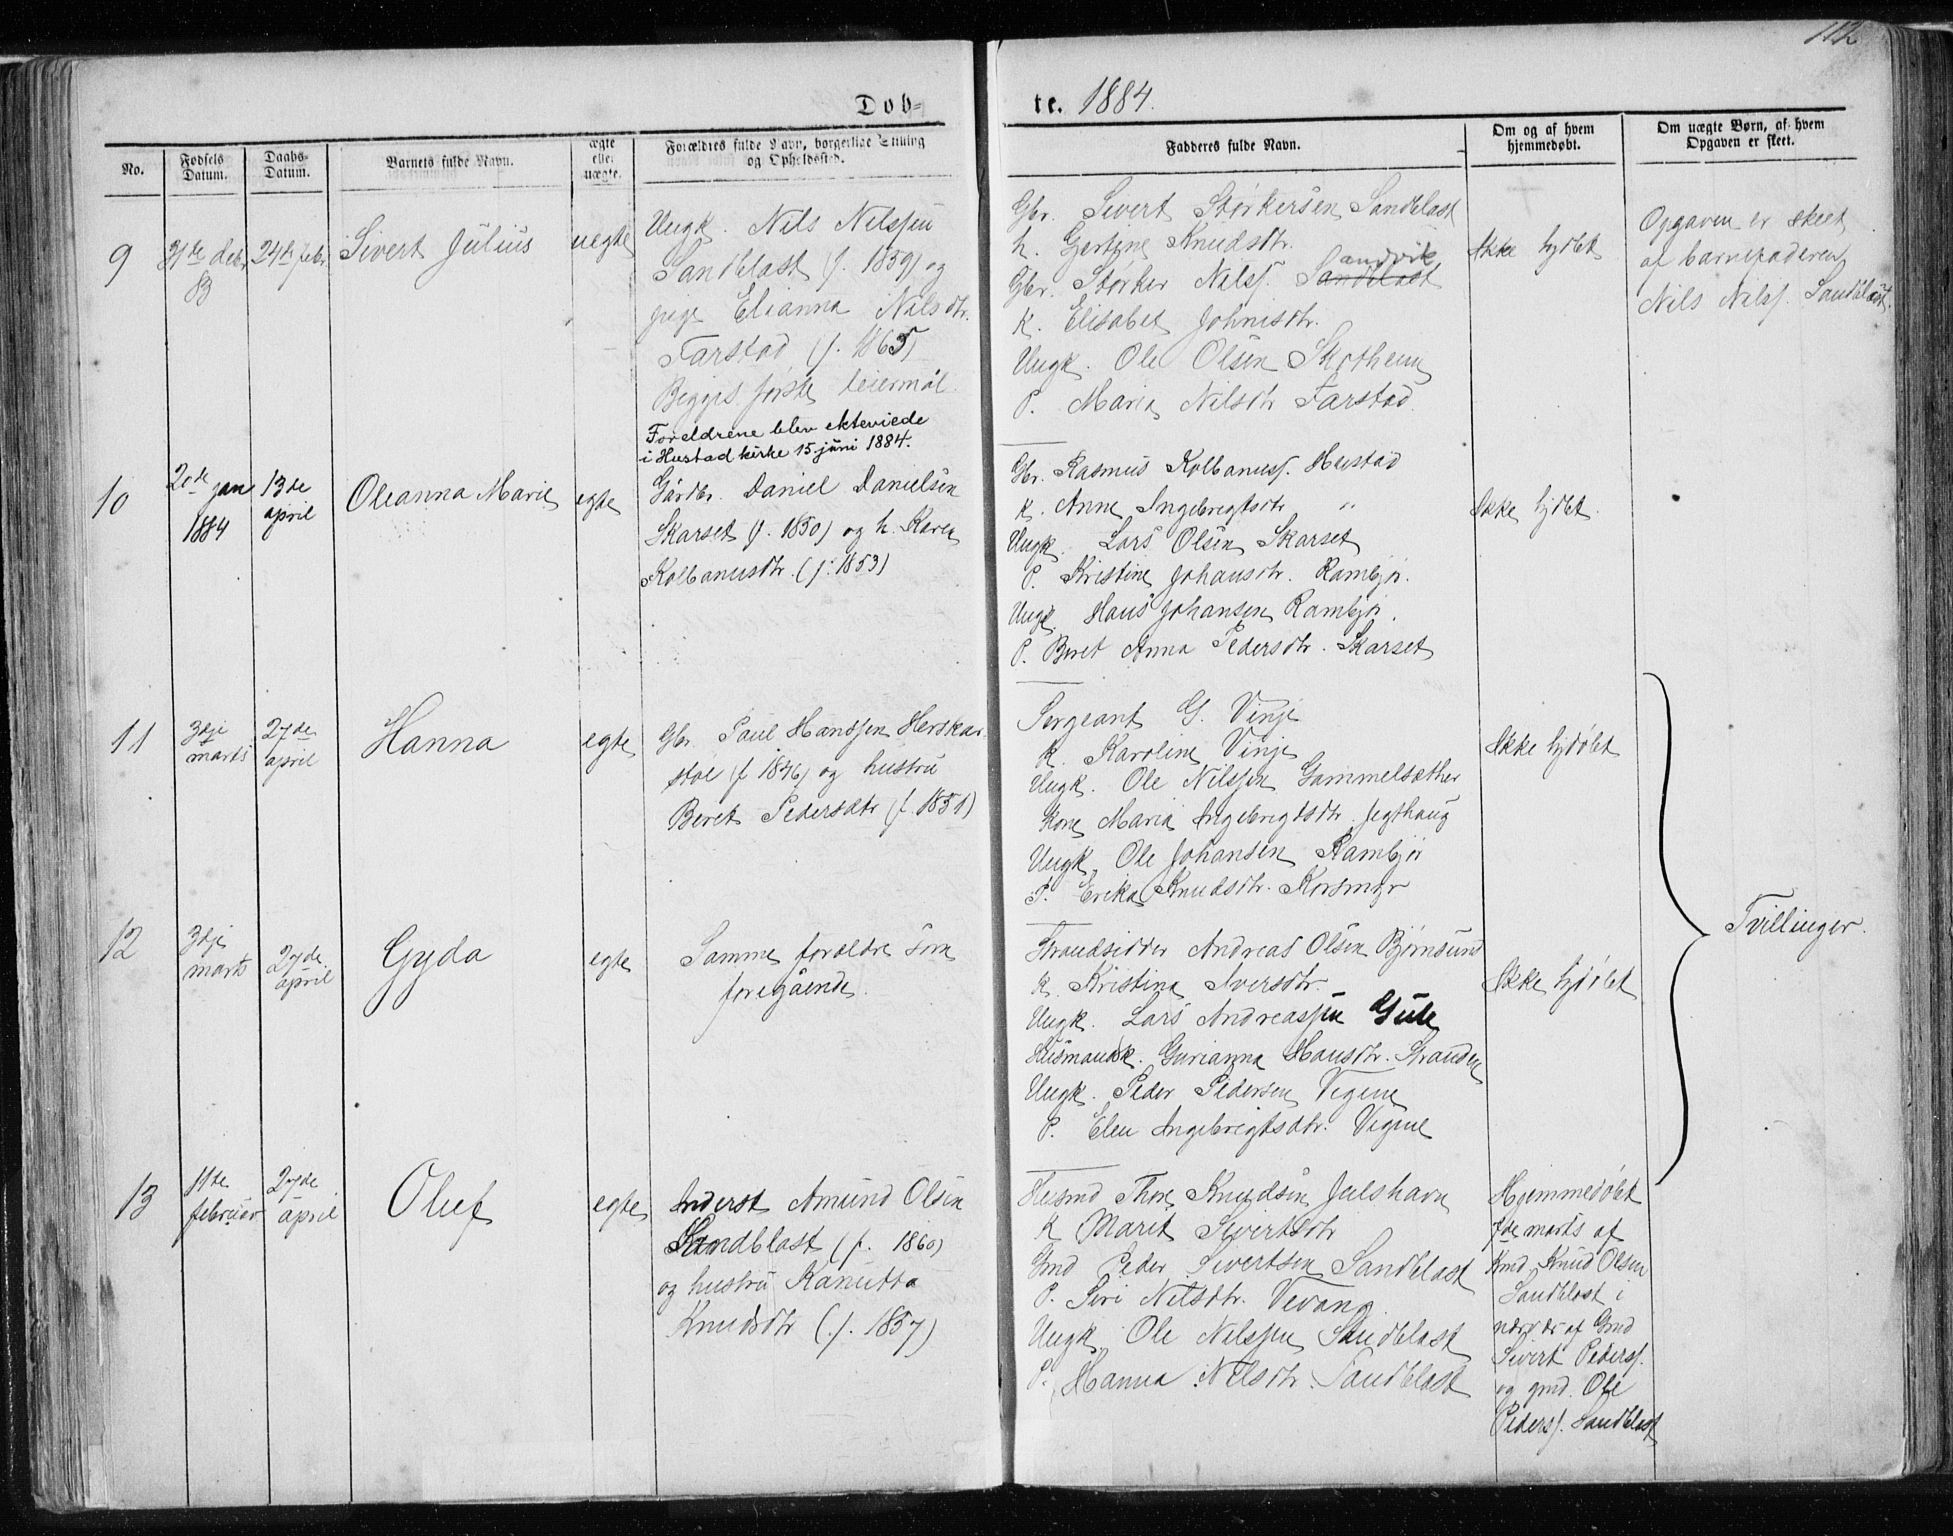 112
Døb-
te. 1884.
No.
Fødsels
Datum.
Daabs-
Datum.
Barnets fulde Navn.
ægte
eller
uægte.
Forældres fulde Navn, borgerlige Stilling
og Opholdssted.
Fadderes fulde Navn.
Om og af hvem
hjemmedøbt.
Om uægte Børn, af hvem
Opgaven er skeet.
9
31te debr
83
24de febr
Sivert Julius
uegte
Ungk. Nils Nilssen
Sandblast (f. 1859) og
pige Elianna Nilsdtr.
Farstad (f. 1865)
Begges første leiermål.
Forældrene blev ekteviede
i Hustad kirke 15. juni 1884.
Gbr. Sivert Størkersen Sandblast
h. Gertine Knudsdtr.
Sandvik
Gbr. Størker Nilss. Sandblast
K. Elisabet Johnisdtr.
Ungk. Ole Olsen Skotheim
P. Maria Nilsdtr Farstad.
Ikke hjdøbt
Opgaven er skeet
af barnefaderen
Nils Nilss. Sandblast.
10
2den jan
1884
13de
april
Oleanna Marie
egte
Gårdbr. Daniel Danielsen
Skarset (f. 1850) og h. Karen
Kolbanusdtr. (f. 1853)
Gbr. Rasmus Kolbanuss. Hustad
K. Anne Ingebrigtsdtr "
Ungk. Lars Olsen Skarset
P. Kristine Johansdtr. Rambjør.
Ungk. Hans Johansen Rambjør.
P. Beret Anna Pedersdtr. Skarset
Ikke hjdøbt.
11
3dje
marts
27de
april
Hanna
egte
Gbr. Paul Hanssen Herskar-
stol (f. 1846) og hustru
Beret Pedersdtr (f. 1851)
Sergeant G. Vinje
K. Karoline Vinje
Ungk. Ole Nilssen Gammelsæther
Kone Maria Ingebrigtsdtr. Jegthaug
Ungk. Ole Johansen Rambjør
P. Erika Knudsdtr. Korsmyr
Ikke hjdøbt
Tvillinger.
12
3dje
marts
27de
april
Gyda
egte
Samme foreldre som
foregående.
Strandsidder Andreas Olsen Bjørnsund
K. Kristina Iversdtr.
Ungk. Lars Andreassen Gule
Husmandsk. Gurianna Hansdtr. Stranden
Ungk. Peder Pedersen Vegene
P. Elen Ingebrigtsdtr. Vegene
Ikke hjdøbt
13
11te
februar
27de
april
Oluf
egte
Inderst Amund Olsen
Sandblast (f. 1860)
og hustru Kanutta
Knudsdtr (f. 1857)
Husmd Thore Knudsen Julshavn
K Marit Sivertsdtr
Gmd Peder Sivertsen Sandblast
P. Siri Nilsdtr. Vevang.
Ungk. Ole Nilssen Sandblast
P. Hanna Nilsdtr. Sandblast
Hjemmedøbt
7de marts af
Kmd Knud Olsen
Sandblast i
nærvær af Gmd
Sivert Peders.
og gmd. Ole
Peders. Sandblast